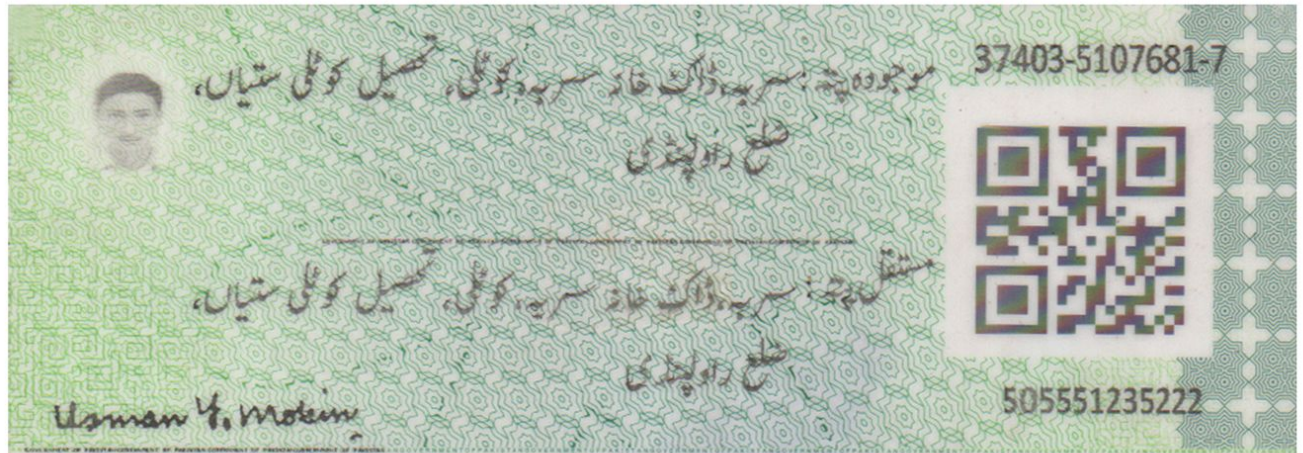 37403-5107681-7
موجودہ پتہ: سربہ، ڈاک خانہ سربہ، کوٹلی، تحصیل کوٹلی ستیاں،
ضلع راولپنڈی
مستقل پتہ: سربہ، ڈاک خانہ سربہ، کوٹلی، تحصیل کوٹلی ستیاں،
ضلع راولپنڈی
505551235222
Usman Y. Mobin